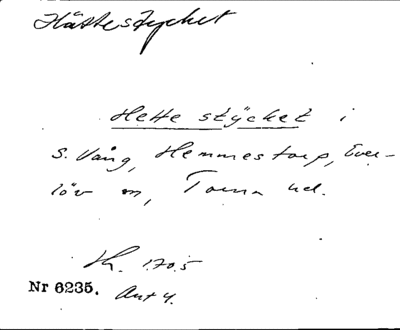 Hättestycket
Hette stÿcket i
S. Vång, Hemmestorp, Ever-
löv sn, Torna hd.
Lh. 1705
Nr 6235. Ant 4.